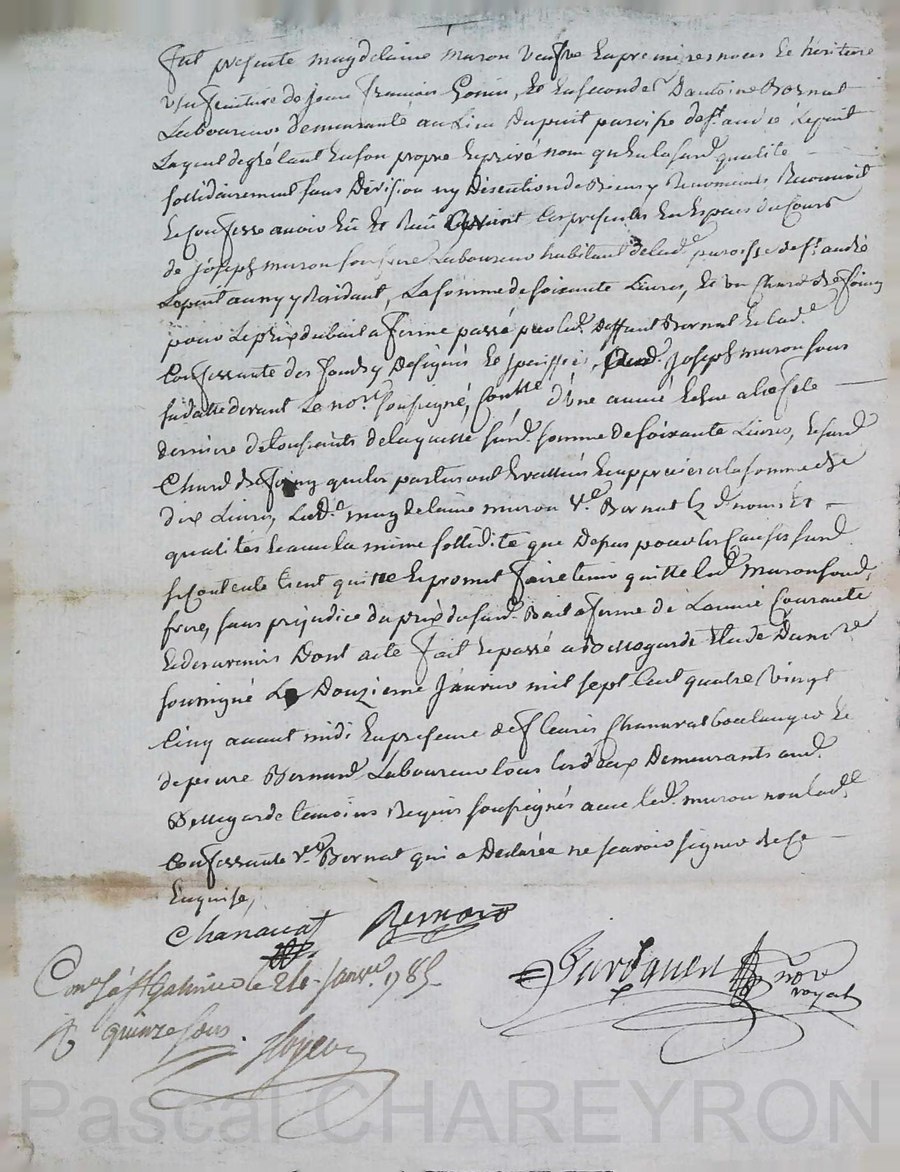 fut presente magdelaine muron veufve en premieres noces et héritiere
usufruitiere de jean francois Gonin, et en secondes D'antoine Bornat
Laboureur demeurante au Lieu Dupuit paroisse de st andré Lepuit
Laquelle de gré tant en son propre et privé nom qu'en la susd. qualité
sollidairement sans Division ny Discution de Biens y Renoncant Reconnoit
et Confesse avoir Eu et Reçu avant les presentes En Espece de Cours
de joseph muron son frere Laboureur habitant de lad. paroisse de st. andré
Lepuit au ny y Residant, La somme de soixante Livres, et un Chard de foing
pour Le prix du bail a ferme passé par led. Deffunt Bornat et lad.
Confessante des fonds y Designés et specifiés, Aud. joseph muron sous
sa datte devant Le nore. soussigné, Contte. d'une année Echue a la fete
derniere de toussaints de laquelle susd. somme de soixante Livres, et susd.
Chard de foing que les parties ont Evallués et apprecies a la somme de
dix Livres, Lad. magdelaine muron ve. Bornat Ez d. noms Et
qualites et avec la même sollidité que Dessus pour les Causes susd.
se Contente tient quitte et promet faire tenir quitte led. Muron son d.
frere, sans prejudice du prix du susd. Bail a ferme de L'année Courante
et des avenirs Dont acte fait et passé a Bellegarde Etude Du nore
soussigné Le Douzieme Janvier mil sept Cent quatre vingt
Cinq avant midi En presence de fleuris Chanavat boulanger et
de pierre Bernard Laboureur tous les deux Demeurants aud.
Bellegarde temoins Requis soussignés avec led. muron non lad.
Confessante ve. Bornat qui a Declarée ne scavoir signer de ce
Enquise,
Chanavat Bernard
Jurdquen nore
royal
Conlé a st Galmier le 24 Janvr. 1785
R quinze sous.
Pascal CHAREYRON